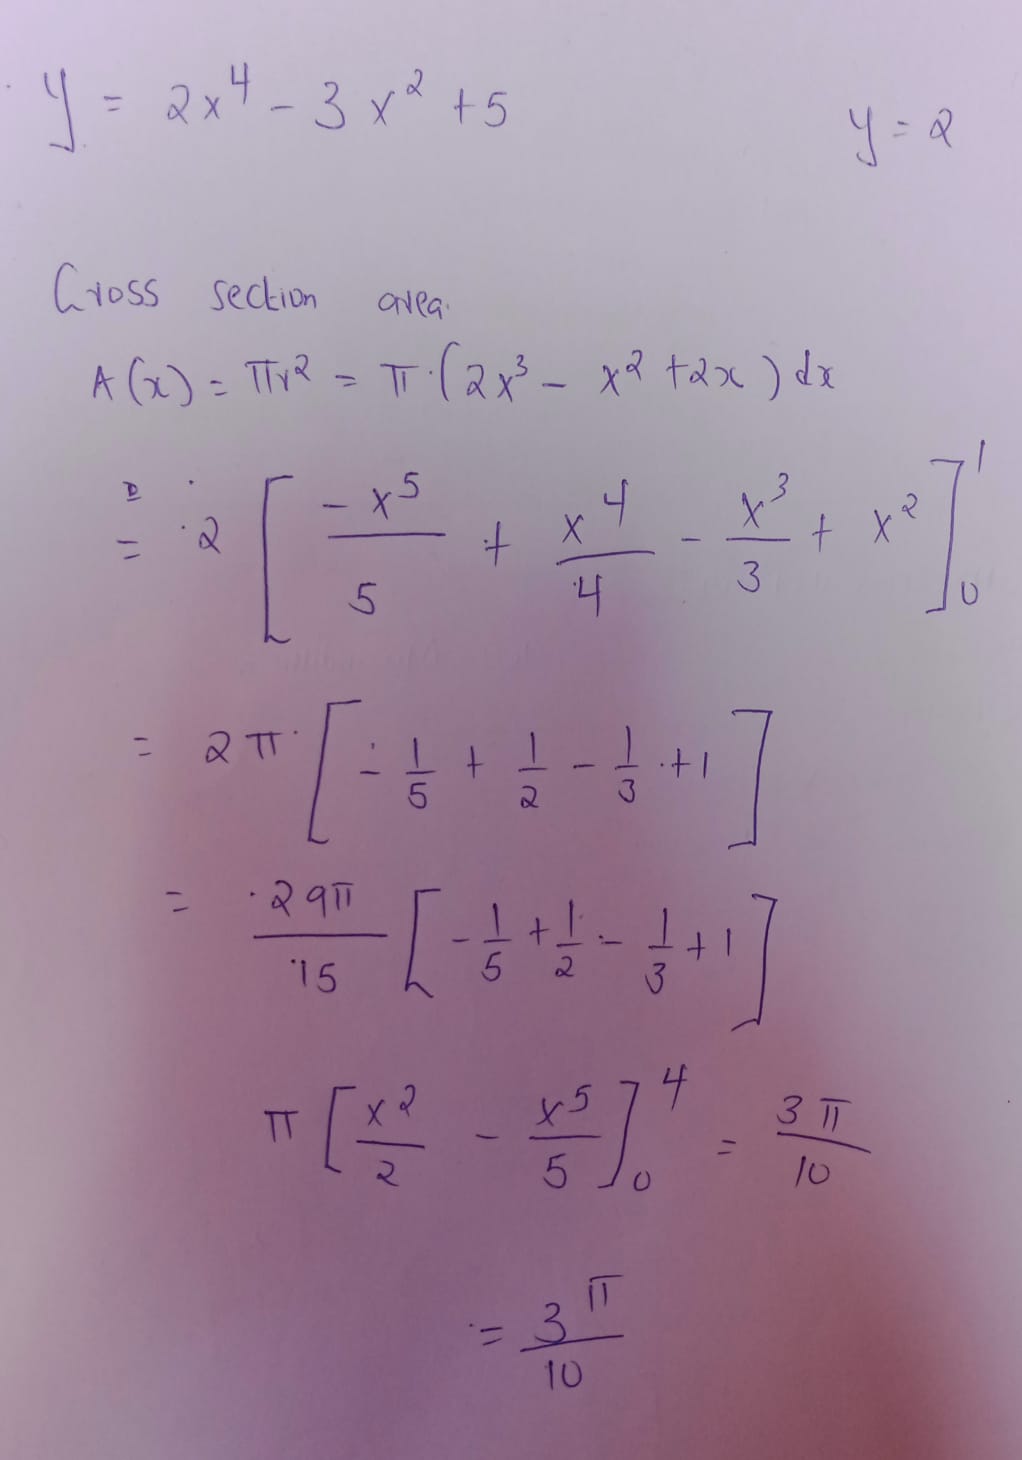 y = 2x⁴ - 3x² + 5 y = 2
Cross section area.
A(x) = πr² = π·(2x³ - x² + 2x) dx
= 2 [ -x⁵/5 + x⁴/4 - x³/3 + x² ]₀¹
= 2π [ -1/5 + 1/2 - 1/3 + 1 ]
= 29π/15 [ -1/5 + 1/2 - 1/3 + 1 ]
π [ x²/2 - x⁵/5 ]₀⁴ = 3π/10
= 3π/10